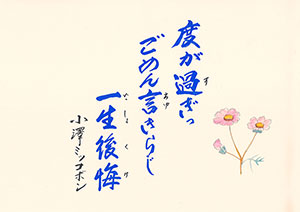 度が過ぎっ
ごめん言きらじ
一生後悔
小澤ミツコボン